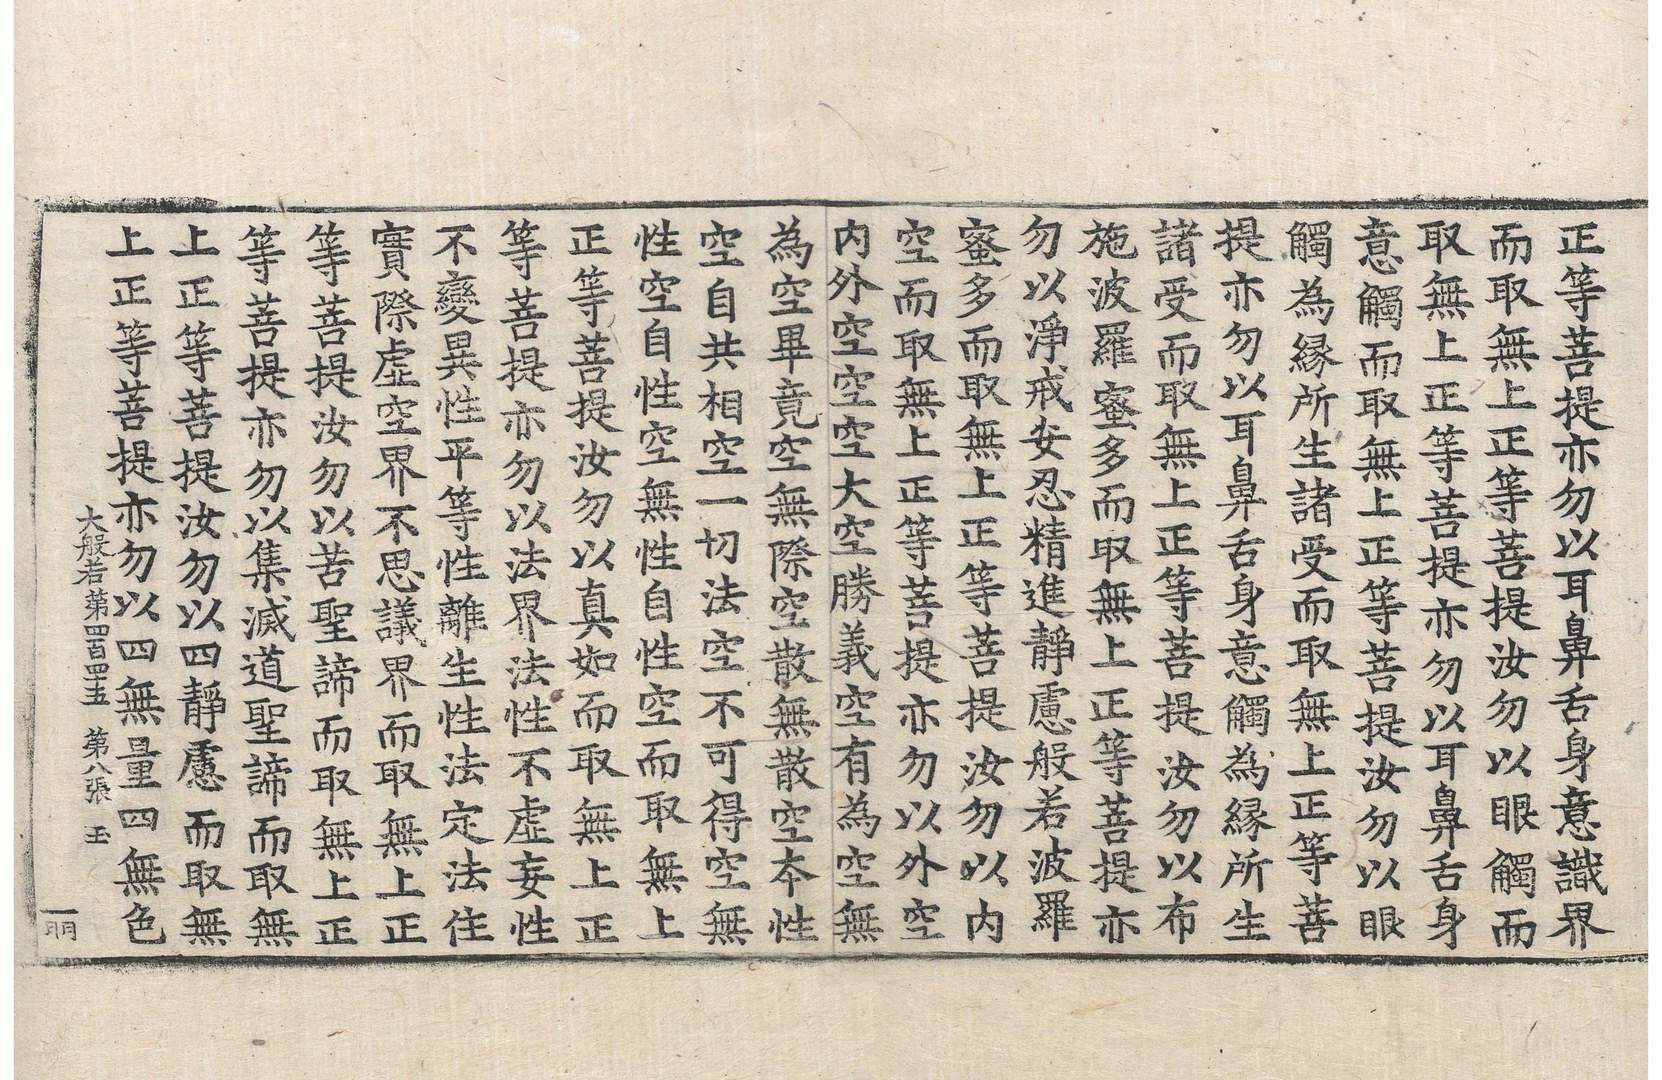 正等菩提亦勿以耳鼻舌身意識界
而取無上正等菩提汝勿以眼觸而
取無上正等菩提亦勿以耳鼻舌身
意觸而取無上正等菩提汝勿以眼
觸為緣所生諸受而取無上正等菩
提亦勿以耳鼻舌身意觸為緣所生
諸受而取無上正等菩提汝勿以布
施波羅蜜多而取無上正等菩提亦
勿以淨戒安忍精進靜慮般若波羅
蜜多而取無上正等菩提汝勿以內
空而取無上正等菩提亦勿以外空
內外空空空大空勝義空有為空無
為空畢竟空無際空散無散空本性
空自共相空一切法空不可得空無
性空自性空無性自性空而取無上
正等菩提汝勿以真如而取無上正
等菩提亦勿以法界法性不虛妄性
不變異性平等性離生性法定法住
實際虛空界不思議界而取無上正
等菩提汝勿以苦聖諦而取無上正
等菩提亦勿以集滅道聖諦而取無
上正等菩提汝勿以四靜慮而取無
上正等菩提亦勿以四無量四無色
大般若第四百四五 第八張 玉